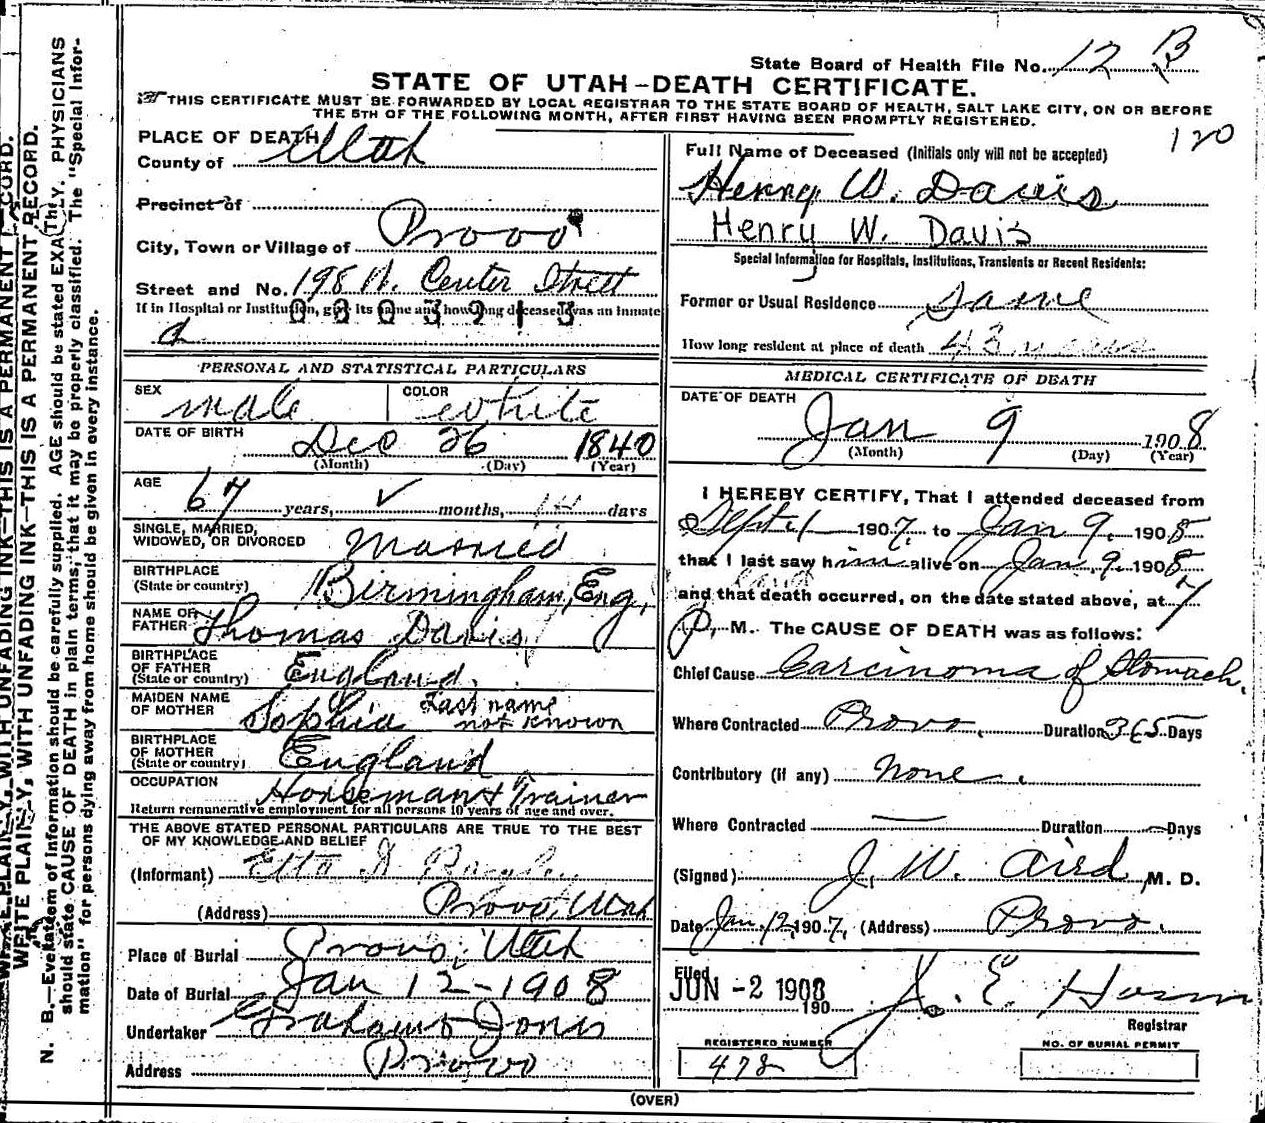 State Board of Health File No. 12 B
STATE OF UTAH-DEATH CERTIFICATE.
THIS CERTIFICATE MUST BE FORWARDED BY LOCAL REGISTRAR TO THE STATE BOARD OF HEALTH, SALT LAKE CITY, ON OR BEFORE
THE 5TH OF THE FOLLOWING MONTH, AFTER FIRST HAVING BEEN PROMPTLY REGISTERED.
120
PLACE OF DEATH
County of Utah
Precinct of
City, Town or Village of Provo
Street and No. 198 W. Center Street
If in Hospital or Institution, give its name and how long deceased was an inmate
0003213
PERSONAL AND STATISTICAL PARTICULARS
SEX male COLOR white
DATE OF BIRTH Dec 26 1840
(Month) (Day) (Year)
AGE 67 years, ✓ months, 14 days
SINGLE, MARRIED,
WIDOWED, OR DIVORCED Married
BIRTHPLACE
(State or country) Birmingham, Eng.
NAME OF
FATHER Thomas Davis
BIRTHPLACE
OF FATHER
(State or country) England.
MAIDEN NAME
OF MOTHER Sophia Last name
not known
BIRTHPLACE
OF MOTHER
(State or country) England
OCCUPATION Horseman & Trainer
Return remunerative employment for all persons 10 years of age and over.
THE ABOVE STATED PERSONAL PARTICULARS ARE TRUE TO THE BEST
OF MY KNOWLEDGE AND BELIEF
(Informant) Etta
(Address) Provo, Utah
Place of Burial Provo, Utah
Date of Burial Jan 12-1908
Undertaker Jones
Address Provo
Full Name of Deceased (Initials only will not be accepted)
Henry W. Davis
Henry W. Davis
Special Information for Hospitals, Institutions, Transients or Recent Residents:
Former or Usual Residence Same
How long resident at place of death 43 years
MEDICAL CERTIFICATE OF DEATH
DATE OF DEATH
Jan 9 1908
(Month) (Day) (Year)
I HEREBY CERTIFY, That I attended deceased from
Sept 1 1907. to Jan 9. 1908
that I last saw him alive on Jan. 9. 1908
and that death occurred, on the date stated above, at 7
P. M. The CAUSE OF DEATH was as follows:
Chief Cause Carcinoma of Stomach.
Where Contracted Provo. Duration 365 Days
Contributory (if any) none.
Where Contracted — Duration — Days
(Signed) J. W. Aird, M. D.
Date Jan. 12, 1907, (Address) Provo.
Filed
JUN -2 1908
190 J. E.
Registrar
REGISTERED NUMBER
478
NO. OF BURIAL PERMIT
(OVER)
WRITE PLAINLY, WITH UNFADING INK-THIS IS A PERMANENT RECORD.
WRITE PLAINLY, WITH UNFADING INK-THIS IS A PERMANENT RECORD.
N. B.-Every item of information should be carefully supplied. AGE should be stated EXACTLY. PHYSICIANS
should state CAUSE OF DEATH in plain terms, that it may be properly classified. The "Special Infor-
mation" for persons dying away from home should be given in every instance.